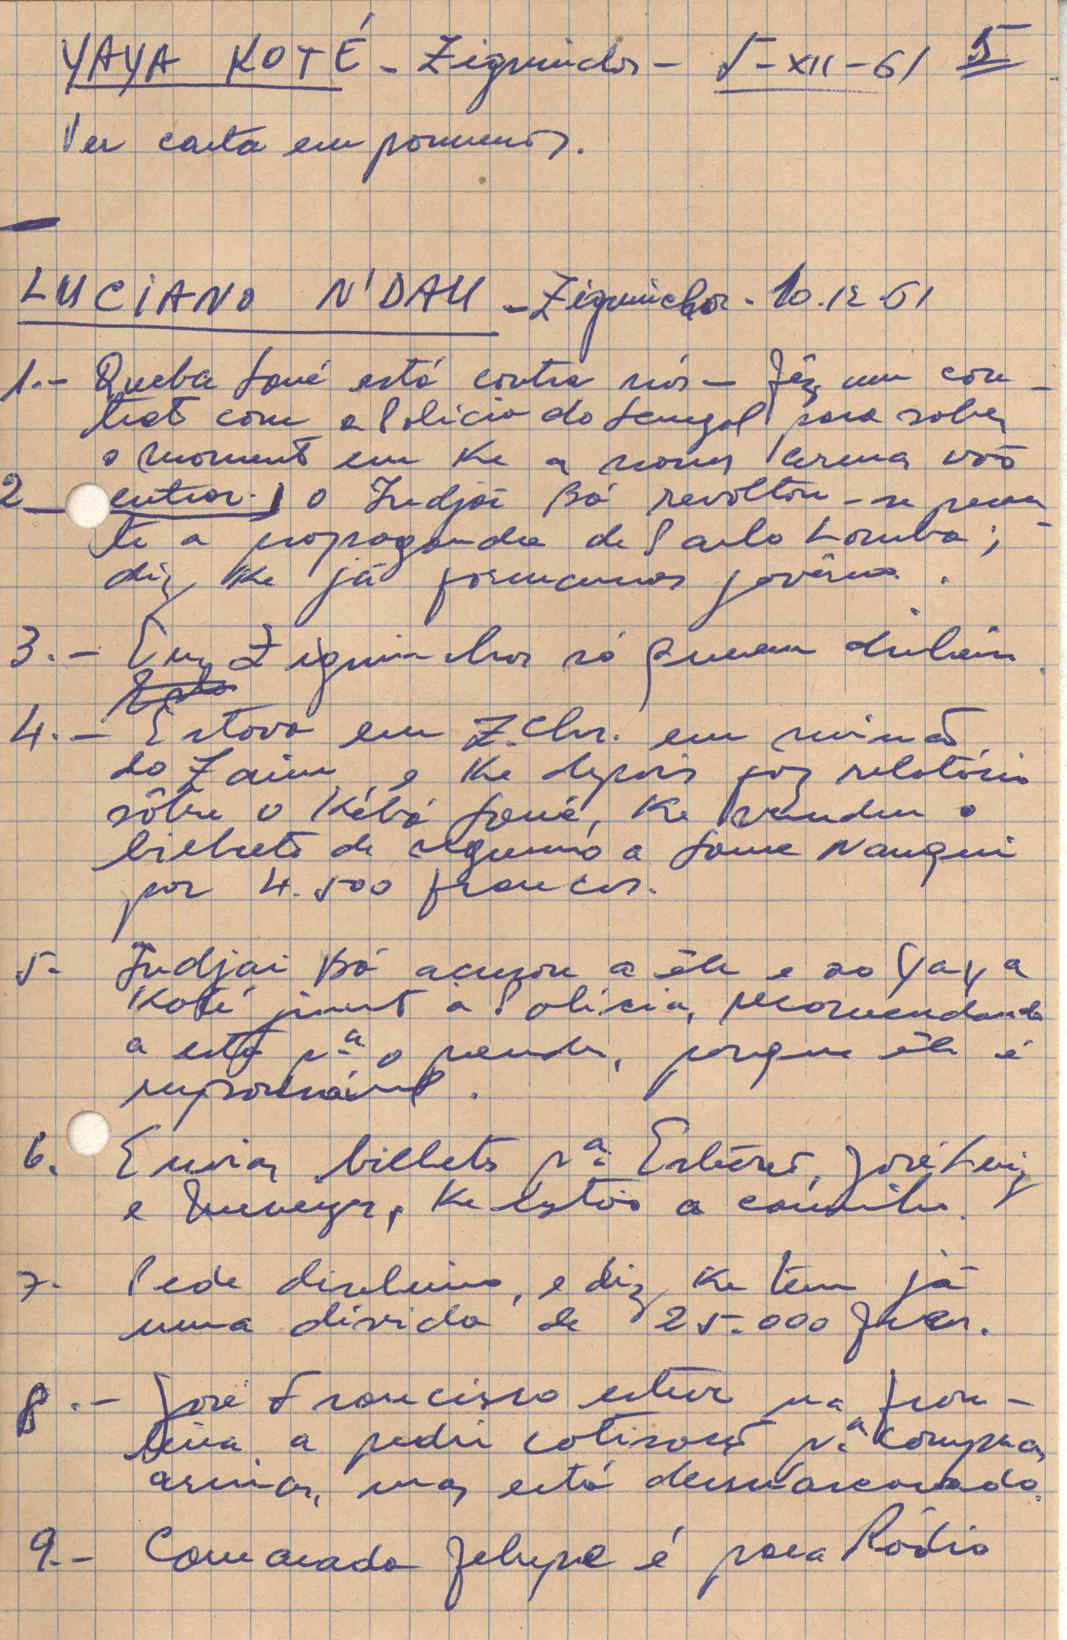 YAYA KOTÉ - Ziguinchor - 5-XII-61 5
Ver carta em pormenor.
LUCIANO N'DAU - Ziguinchor - 10.12.61
1.- Queba Sané está contra nós - Fêz um con-
trato com a Polícia do Senegal para saber
o momento em ke a nossas armas vão
2 entrar. O Indjai Bá revoltou-se peran-
te a propaganda de Paulo Lomba;
diz ke já formamos govêrno.
3.- Em Ziguinchor só querem dinheiro.
4.- Estava em Z.chor. em missão
do Zain, e ke depois fez relatório
sôbre o Kébá Sané, ke vendeu o
bilhete de a Sane Nanqui
por 4.500 francos.
5- Indjai Bá acusou a êle e ao Yaya
Koté junto à Polícia, recomendando
a esta pª o prender, porque êle é
responsável.
6. Enviar bilhete pª Estêvão, José Luiz
e ke estão a caminho.
7- Pede dinheiro, e diz ke tem já
uma dívida de 25.000 frcs.
8.- José Francisco esteve na fron-
teira a pedir cotisação pª comprar
armas, mas está desmascarado.
9.- Camarada Felupe é para Rádio